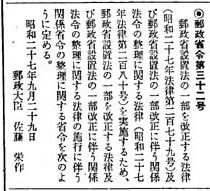 ◉郵政省令第三十二号
郵政省設置法の一部を改正する法律
(昭和二十七年法律第二百七十九号)及
び郵政省設置法の一部改正に伴う関係
法令の整理に関する法律(昭和二十七
年法律第二百八十号)を実施するため、
郵政省設置法の一部を改正する法律及
び郵政省設置法の一部改正に伴う関係
法令の整理に関する法律の施行に伴う
関係省令の整理に関する省令を次のよ
うに定める。
昭和二十七年九月二十九日
郵政大臣 佐藤 栄作